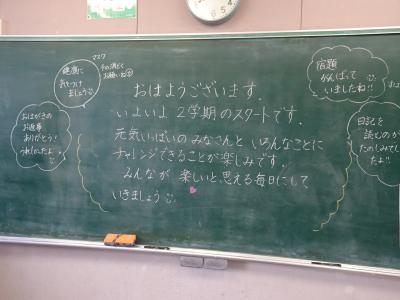 おはようございます.
いよいよ2学期のスタートです.
元気いっぱいのみなさんといろんなことに
チャレンジできることが楽しみです.
みんなが楽しいと思える毎日にして
いきましょう
健康に
気をつけ
ましょう
マスク
手の消どく
お願いね
おはがきの
お返事
ありがとう!
うれしかったよ
宿題
がんばって
いましたね!!
日記を
読むのが
たのしみでし
たよ!!